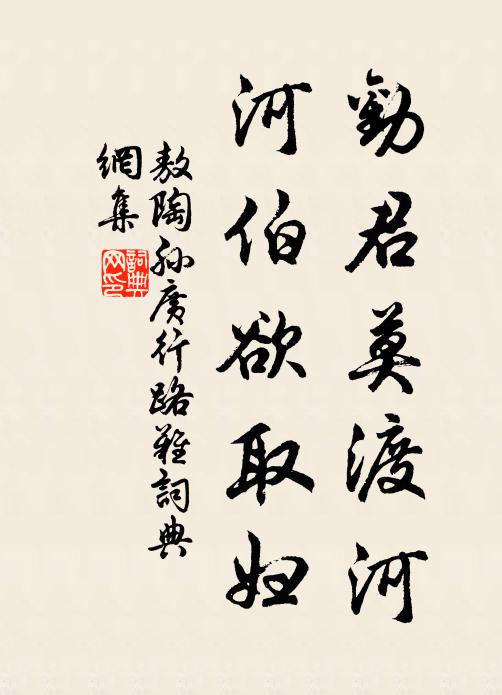 勸君莫渡河
河伯欲取妇
敖陶孙廣行路難詞典
網集
詞典网印